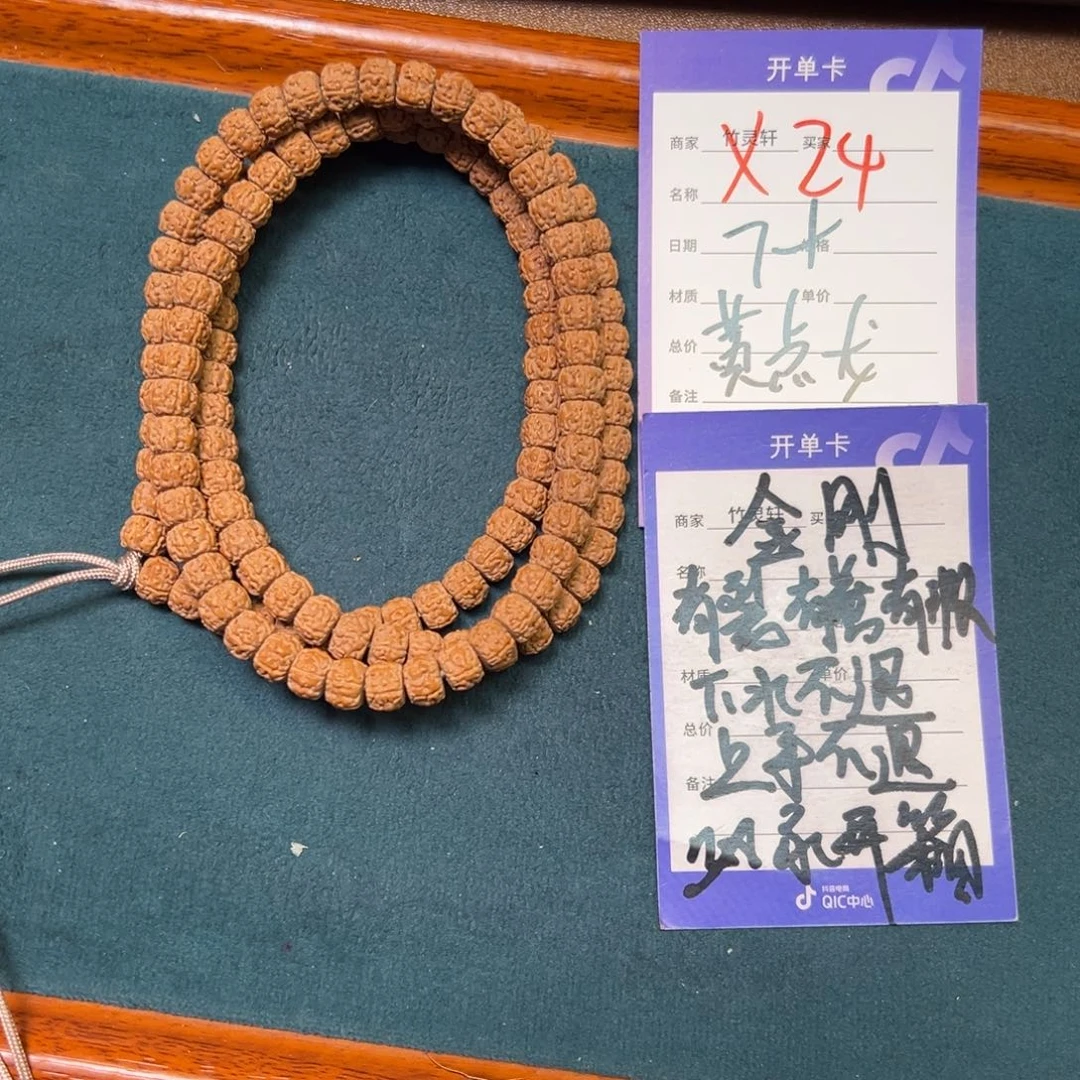 开单卡
商家 竹灵轩 买家
X24
名称
日期 格
材质 单价
总价
备注
开单卡
商家 竹灵轩 买
金刚
名称
有裂有黄有报
材质 单价
下水不退
总价
上手不退
备注
开箱
抖音电商
QIC中心